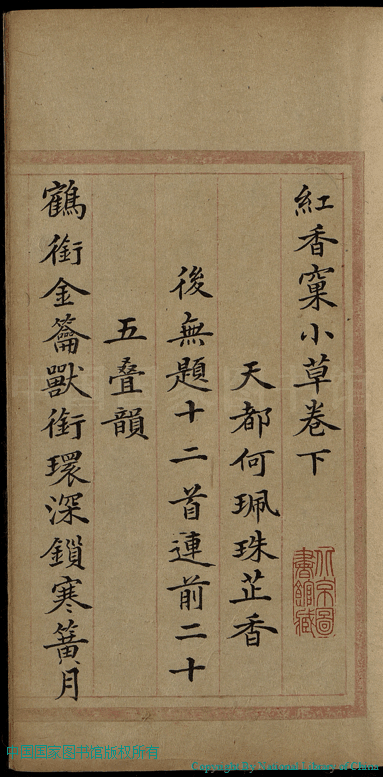 紅香窠小草卷下
天都何珮珠芷香
後無題十二首連前二十
五疊韻
鶴銜金籥獸銜環深鎖寒簧月
北京圖書館藏
中国国家图书馆版权所有
Copyright By National Library of China